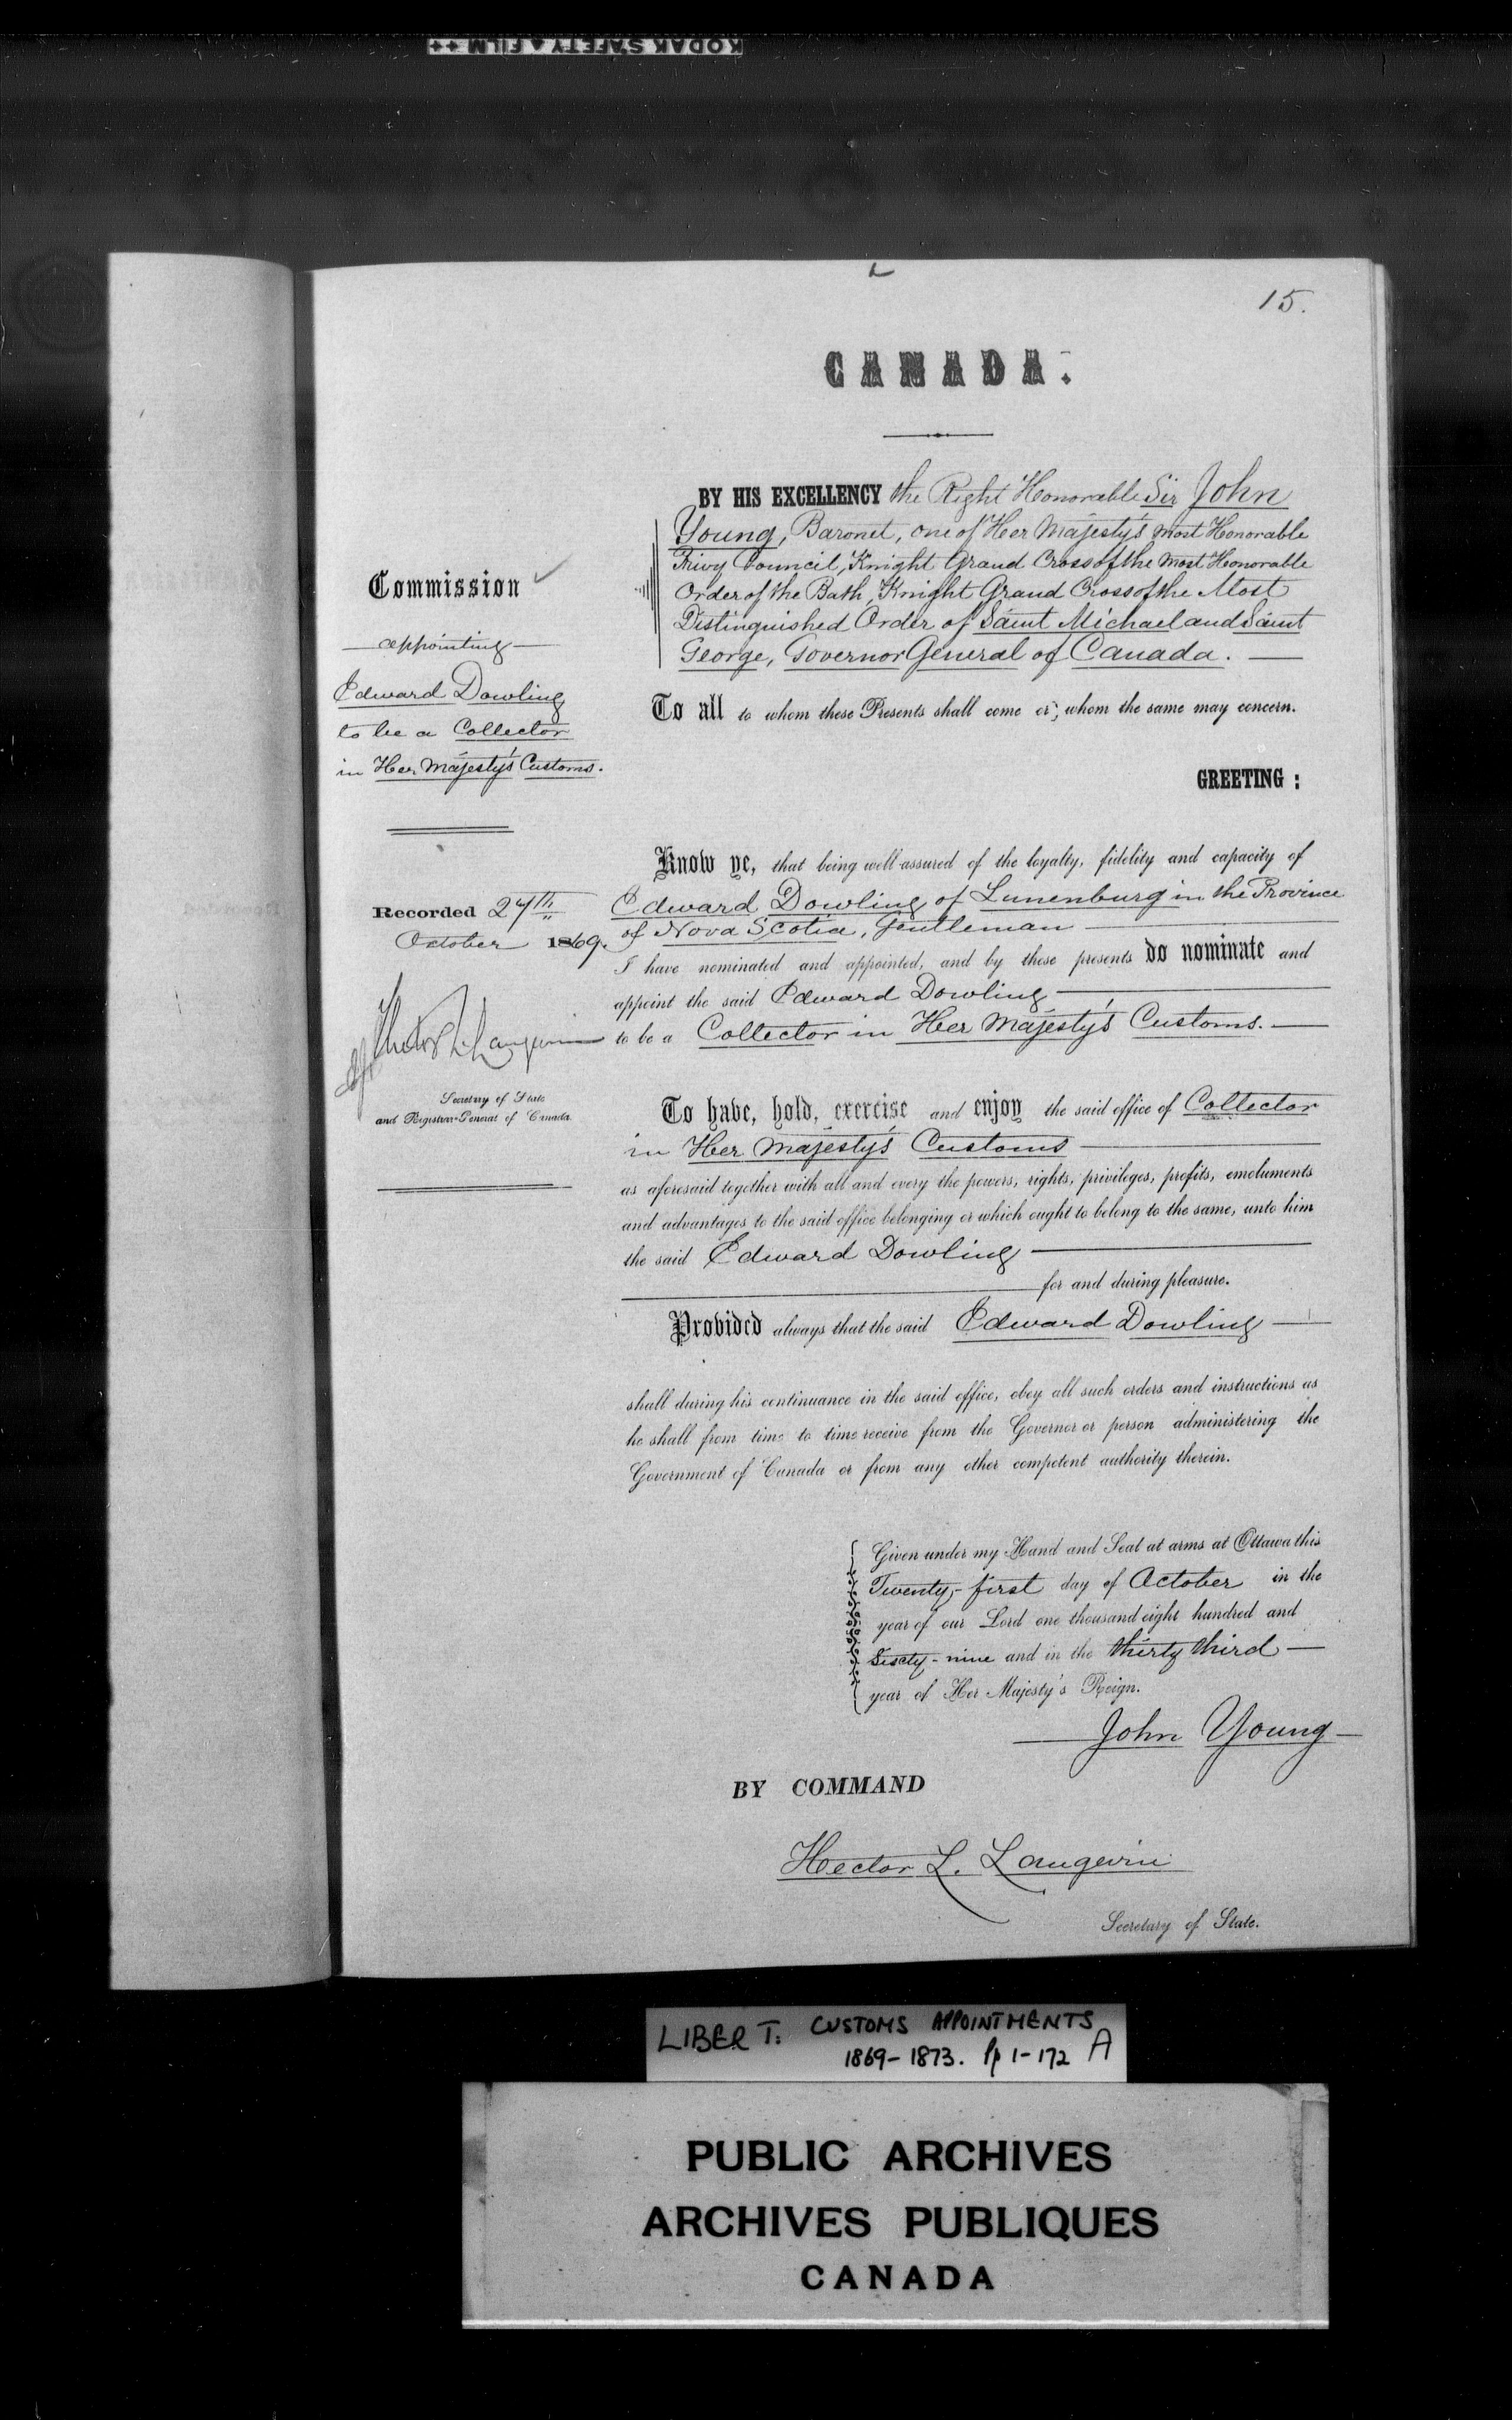 KODAK SAFETY FILM
15.
CANADA.
BY HIS EXCELLENCY the Right Honorable Sir John
Young, Baronet, one of Her Majesty's most Honorable
Privy Council, Knight Grand Cross of the most Honorable
Order of the Bath, Knight Grand Cross of the Most
Distinguished Order of Saint Michael and Saint
George, Governor General of Canada.
Commission
appointing
Edward Dowling
to be a Collector
in Her Majesty's Customs.
To all to whom these Presents shall come or, whom the same may concern.
GREETING :
Know ye, that being well assured of the loyalty, fidelity and capacity of
Edward Dowling of Lunenburg in the Province
of Nova Scotia, Gentleman
I have nominated and appointed, and by these presents do nominate and
appoint the said Edward Dowling
to be a Collector in Her Majesty's Customs.
Recorded 27th
October 1869.
Hector L. Langevin
Secretary of State
and Registrar-General of Canada.
To have, hold, exercise and enjoy the said office of Collector
in Her Majesty's Customs
as aforesaid together with all and every the powers, rights, privileges, profits, emoluments
and advantages to the said office belonging or which ought to belong to the same, unto him
the said Edward Dowling
for and during pleasure.
Provided always that the said Edward Dowling
shall during his continuance in the said office, obey all such orders and instructions as
he shall from time to time receive from the Governor or person administering the
Government of Canada or from any other competent authority therein.
Given under my Hand and Seal at arms at Ottawa this
Twenty-first day of October in the
year of our Lord one thousand eight hundred and
Sixty-nine and in the thirty third
year of Her Majesty's Reign.
John Young
BY COMMAND
Hector L. Langevin
Secretary of State.
LIBER T: CUSTOMS APPOINTMENTS A
1869-1873. pp 1-172
PUBLIC ARCHIVES
ARCHIVES PUBLIQUES
CANADA